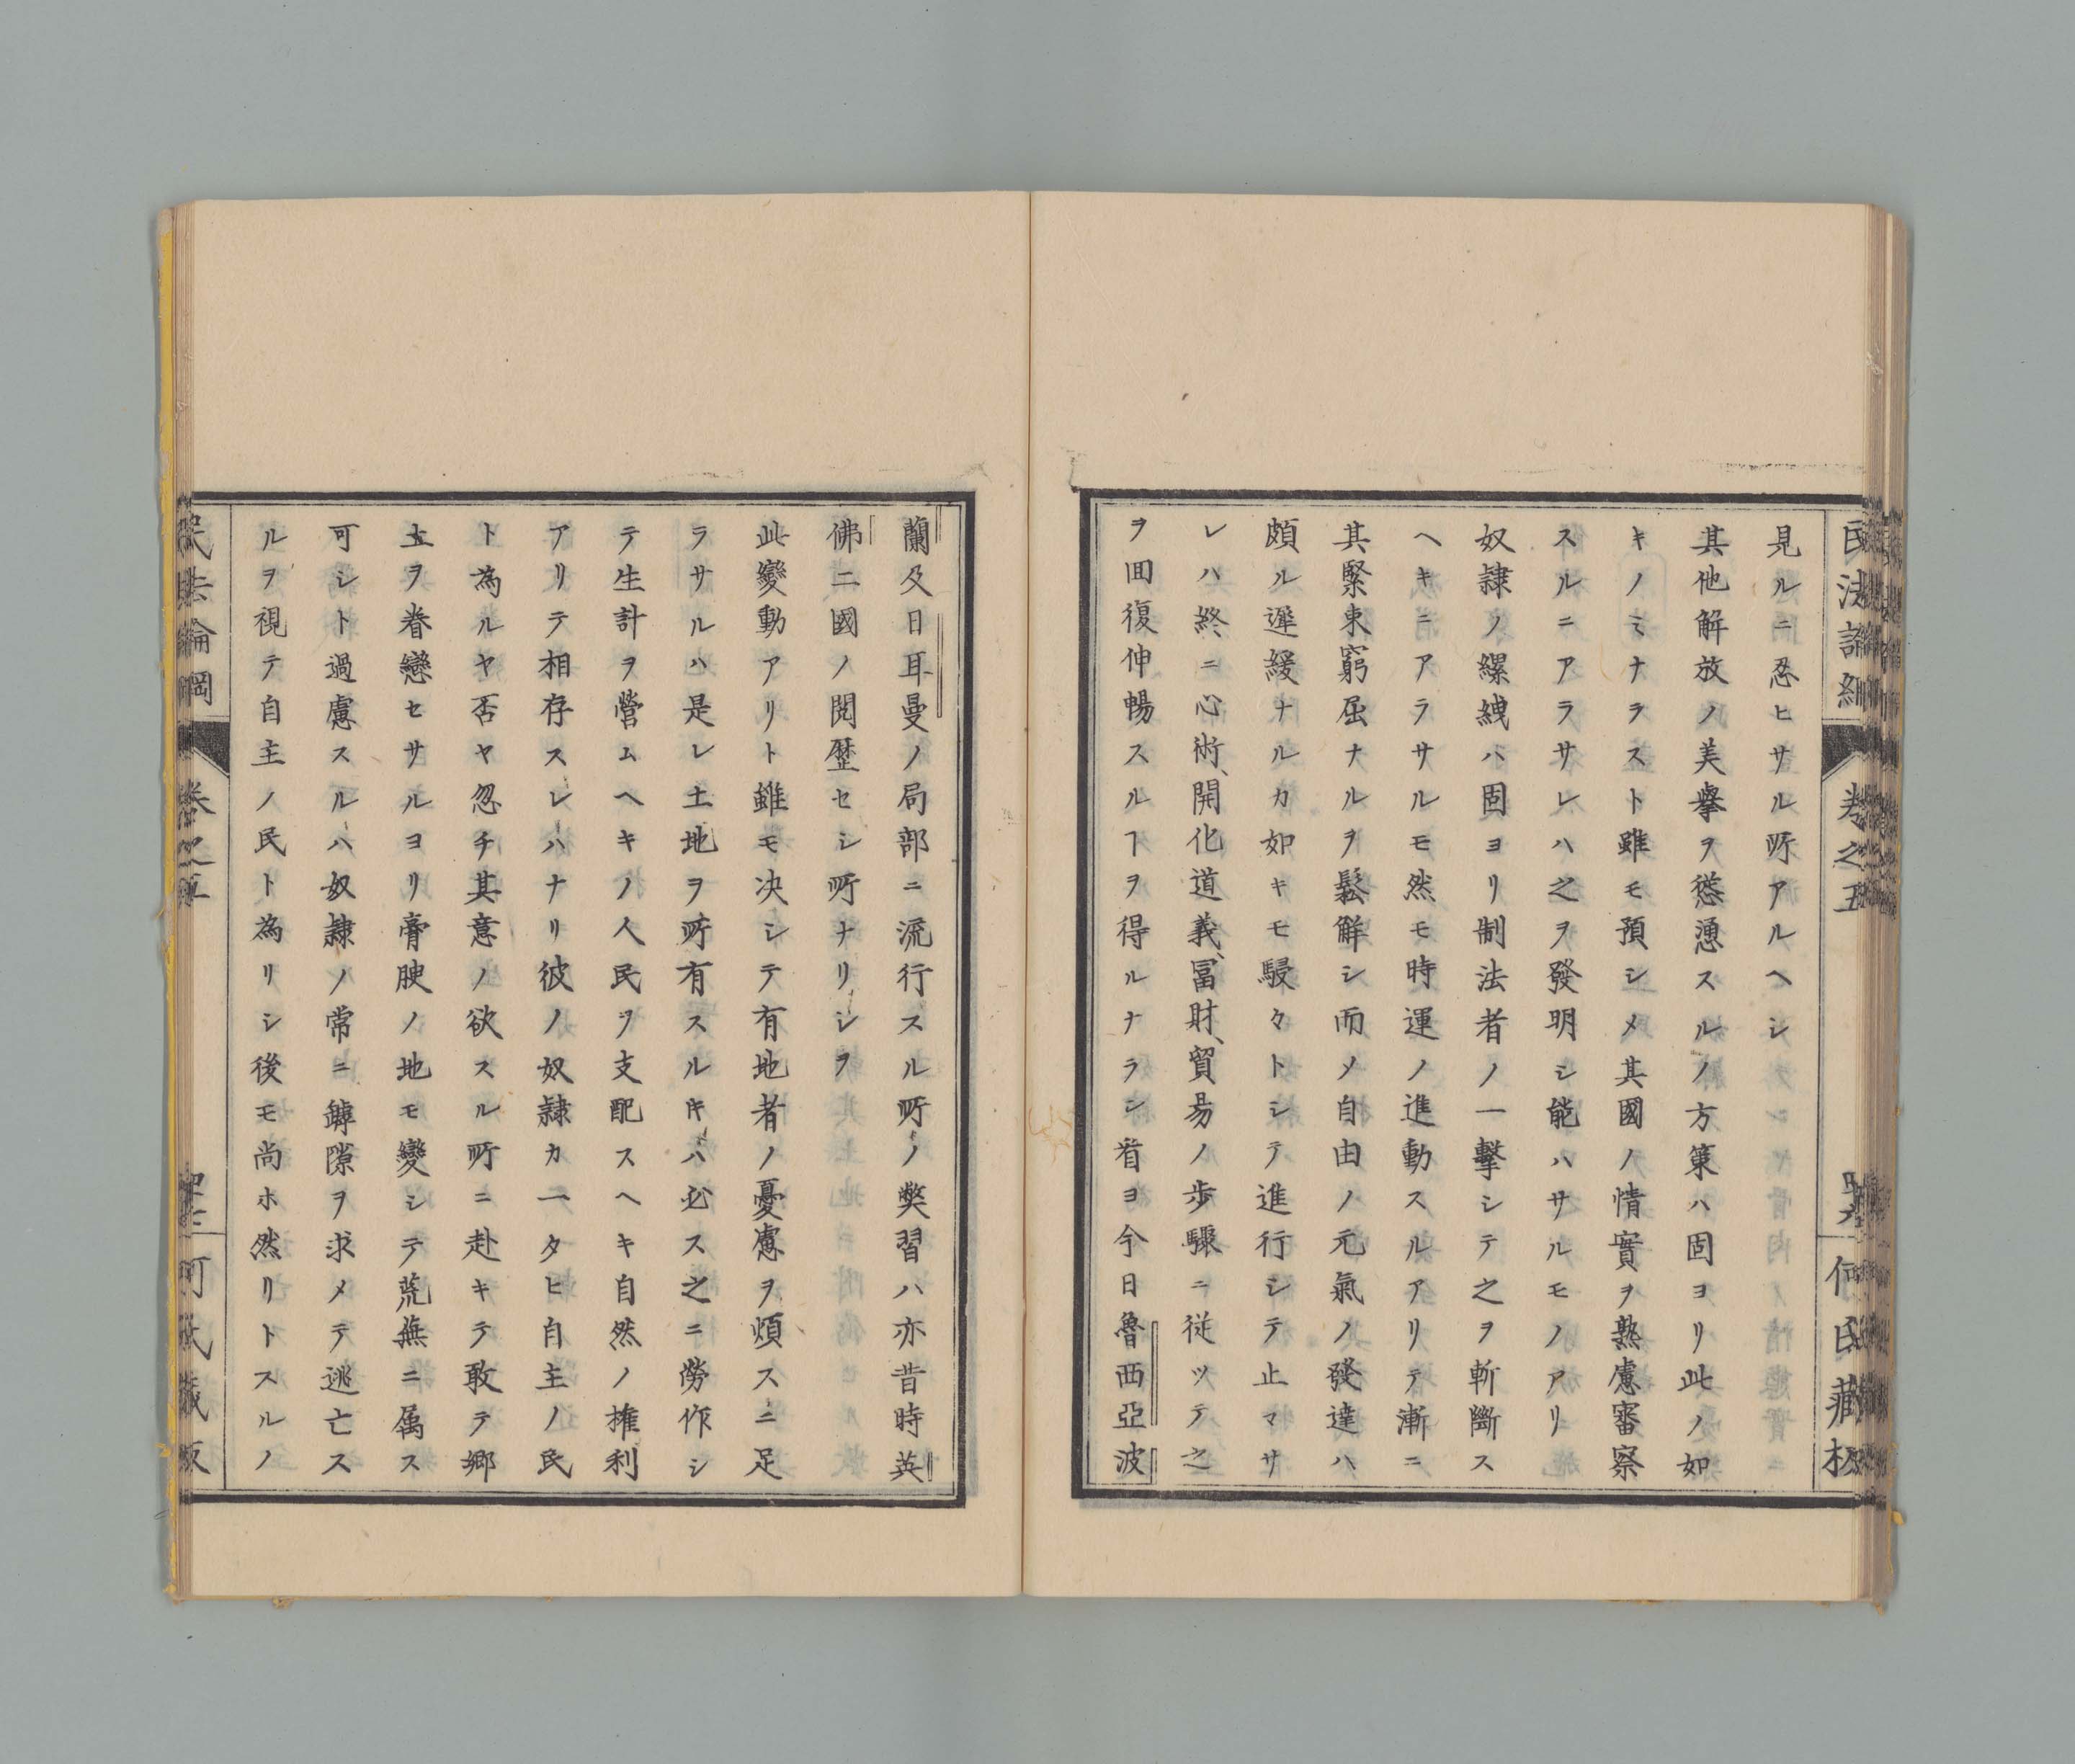 見ルニ忍ヒサル所アルヘシ
其他解放ノ美擧ヲ慫慂スルノ方策ハ固ヨリ此ノ如
キノミナラスト雖モ預シメ其國ノ情實ヲ熟慮審察
スルニアラサレハ之ヲ發明シ能ハサルモノアリ
奴隷ノ縲絏ハ固ヨリ制法者ノ一擊シテ之ヲ斬斷ス
ヘキニアラサルモ然モ時運ノ進動スルアリテ漸ニ
其緊束窮屈ナルヲ鬆解シ而メ自由ノ元氣ノ發達ハ
頗ル遲緩ナルカ如キモ駸々トシテ進行シテ止マサ
レハ終ニ心術、開化道義、冨財、貿易ノ歩驟ニ從ツテ之
ヲ囬復伸暢スルヿヲ得ルナラン看ヨ今日魯西亞波
蘭及日耳曼ノ局部ニ流行スル所ノ獘習ハ亦昔時英
佛二國ノ閲歴セシ所ナリシヲ
此變動アリト雖モ决シテ有地者ノ憂慮ヲ煩スニ足
ラサルハ是レ土地ヲ所有スルキハ必ス之ニ勞作シ
テ生計ヲ營ムヘキノ人民ヲ支配スヘキ自然ノ権利
アリテ相存スレハナリ彼ノ奴隷カ一タヒ自主ノ民
ト為ルヤ否ヤ忽チ其意ノ欲スル所ニ赴キテ敢テ郷
土ヲ眷戀セサルヨリ膏腴ノ地モ變シテ荒蕪ニ属ス
可シト過慮スルハ奴隷ノ常ニ罅隙ヲ求メテ逃亡ス
ルヲ視テ自主ノ民ト為リシ後モ尚ホ然リトスルノ
民法論綱
卷之五
何氏藏板